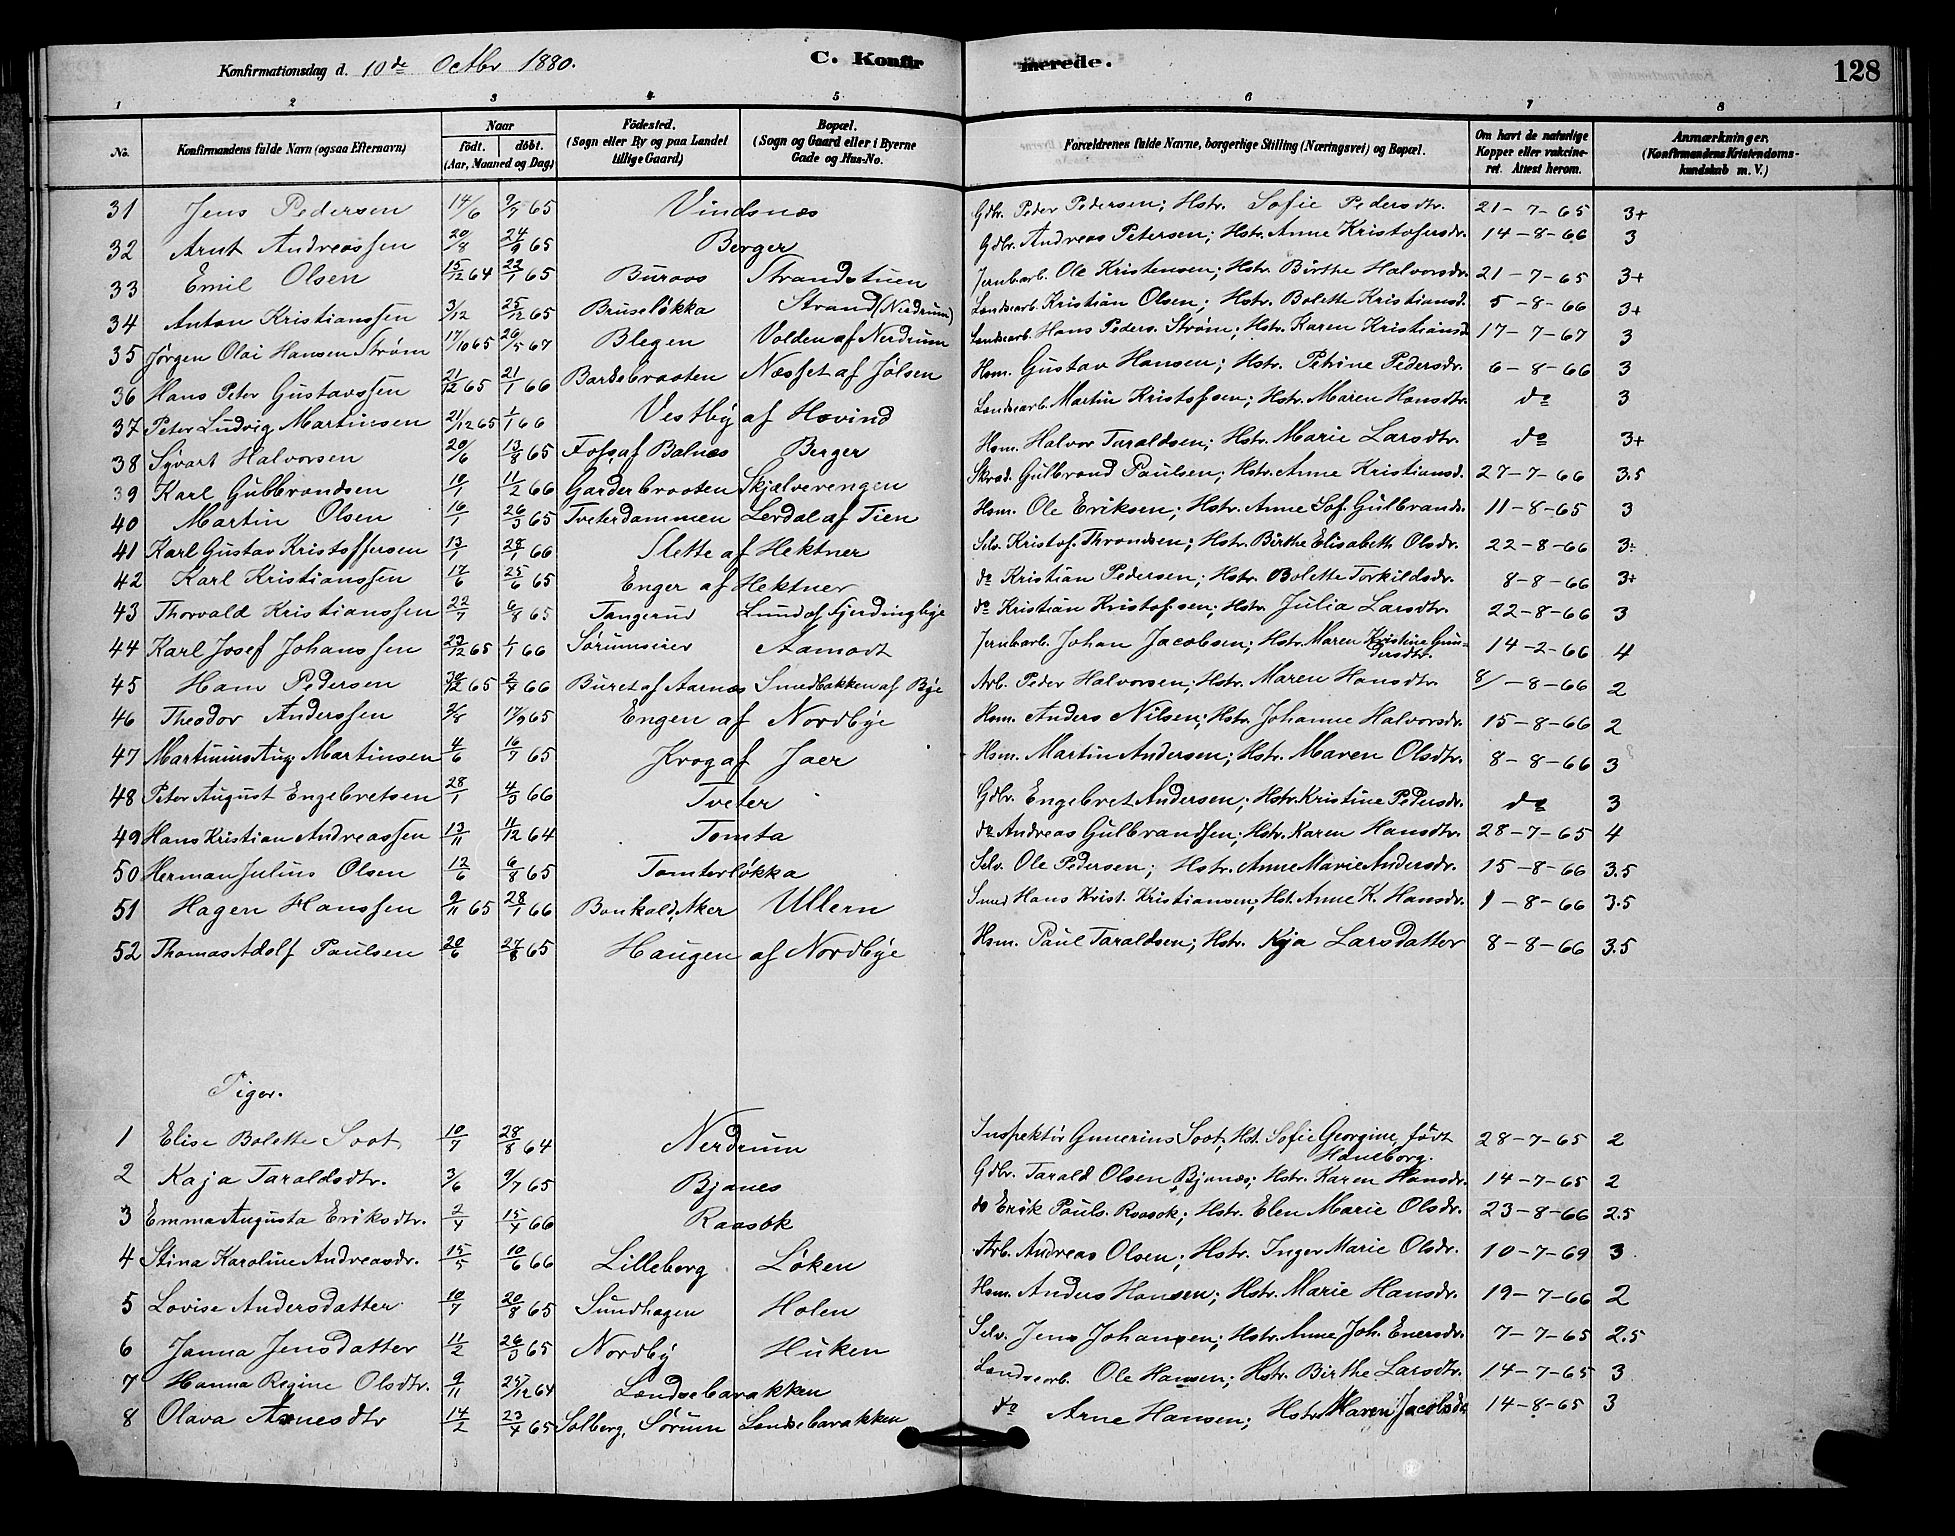 Konfirmationsdag d. 10de Octbr 1880. C. Konfirmerede. 128
1 2 3 4 5 6 7 8
No. Konfirmandens fulde Navn (ogsaa Efternavn) Naar födt. döbt. (Aar, Maaned og Dag) Födested. (Sogn eller By og paa Landet tillige Gaard) Bopæl. (Sogn og Gaard eller i Byerne Gade og Hus-No. Forældrenes fulde Navne, borgerlige Stilling (Næringsvei) og Bopæl. Om havt de naturlige Kopper eller vakcineret. Attest herom. Anmærkninger. (Konfirmandens Kristendomskundskab m. V.)
31 Jens Pedersen 14/6 9/7 65 Vindsnæs Gdbr. Peder Pedersen; Hstr. Sofie Pedersdtr. 21-7-65 3+
32 Arnt Andreassen 20/8 24/9 65 Berger Gdbr. Andreas Petersen; Hstr. Anne Kristofersdr. 14-8-66 3
33 Emil Olsen 15/12 64 22/1 65 Buraas Strandstuen Jernbarb. Ole Kristensen; Hstr. Birthe Halvorsdr. 21-7-65 3+
34 Anton Kristianssen 3/12 25/12 65 Bruseløkka Strand (Nerdrum) Landsearb. Kristian Olsen; Hstr. Bolette Kristiansd. 5-8-66 3+
35 Jørgen Olai Hansen Strøm 17/10 65 26/5 67 Blegen Volden af Nerdrum Landsearb. Hans Peders. Strøm; Hstr. Karen Kristiansd. 17-7-67 3
36 Hans Peter Gustavssen 21/12 65 21/1 66 Bardebraaten Næsset af Jølsen Hsm. Gustav Hansen; Hstr. Petrine Pedersdr. 6-8-66 3
37 Peter Ludvig Martinsen 21/12 65 1/1 66 Vestby af Hovind Landsearb. Martin Kristofsen; Hstr. Maren Hansdtr. do 3
38 Syvart Halvorsen 20/6 13/8 65 Foss, af Balnæs Berger Hsm. Halvor Taraldsen; Hstr. Marie Larsdtr. do 3+
39 Karl Gulbrandsen 10/1 11/2 66 Garderbraaten Skjælverengen Skræd. Gulbrand Paulsen; Hstr. Anne Kristiansd. 27-7-66 3.5
40 Martin Olsen 16/1 26/3 65 Tveterdammen Lerdal af Tien Hsm. Ole Eriksen; Hstr. Anne Sof. Gulbrands. 11-8-65 3
41 Karl Gustav Kristoffersen 13/1 28/1 66 Slette af Hektner Selv. Kristof. Throndsen; Hstr. Birthe Elisabeth Olsdr. 22-8-66 3÷
42 Karl Kristianssen 17/6 25/6 65 Enger af Hektner do Kristian Pedersen; Hstr. Bolette Torkildsdr. 8-8-66 3+
43 Thorvald Kristianssen 22/7 6/8 65 Tangerud Lund af Fjerdingbye do Kristian Kristofsen; Hstr. Julia Larsdtr. 22-8-66 3
44 Karl Josef Johanssen 23/12 65 1/1 66 Sørumseier Aamodt Jernbarb. Johan Jacobsen; Hstr. Maren Kristine Gundersdtr. 14-2-66 4
45 Hans Pedersen 30/12 65 2/4 66 Buret af Aarnæs Smedbakken af Bye Arb. Peder Halvorsen; Hstr. Maren Hansdtr. 8/-8-66 2
46 Theodor Anderssen 3/8 17/9 65 Engen af Nordbye Hsm. Anders Nilsen; Hstr. Johanne Halvorsdr. 15-8-66 2
47 Martinius Aug. Martinsen 4/6 16/7 65 Krog af Jaer Hsm. Martin Andersen; Hstr. Maren Olsdtr. 8-8-66 3
48 Peter August Engebretsen 28/1 4/3 66 Tveter Gdbr. Engebret Andersen; Hstr. Kristine Pedersdr. do 3
49 Hans Kristian Andreassen 13/11 4/12 64 Tomta do Andreas Gulbrandsen; Hstr. Karen Hansdtr. 28-7-65 4
50 Herman Julius Olsen 12/6 6/8 65 Tomterløkka Selv. Ole Pedersen; Hstr. Anne Marie Andersdr. 15-8-66 3.5
51 Hagen Hanssen 9/11 65 28/1 66 Bonkald, Aker Ullern Smed Hans Krist. Kristiansen; Hst. Anne K. Hansdr. 1-8-66 3.5
52 Thomas Adolf Paulsen 20/6 27/8 65 Haugen af Nordbye Hsm. Paul Taraldsen; Hstr. Kaja Larsdatter 8-8-66 3.5
Piger.
1 Elise Bolette Soot 10/7 28/8 64 Nerdrum Inspektør Gunerius Soot; Hst. Sofie Georgine, født Haneborg. 28-7-65 2
2 Kaja Taraldsdtr. 3/6 9/7 65 Bjanes Gdbr. Tarald Olsen Bjanæs; Hstr. Karen Hansdr. 14-7-65 2
3 Emma Augusta Eriksdtr. 2/4 15/4 66 Raasok do Erik Pauls. Raasok; Hstr. Elen Marie Olsdr. 23-8-66 2.5
4 Stina Karoline Andreasdr. 15/5 10/6 66 Lilleborg Løken Arb. Andreas Olsen; Hstr. Inger Marie Olsdr. 10-7-69 3
5 Lovise Andersdatter 10/7 20/8 65 Sundhagen Holen Hsm. Anders Hansen; Hstr. Marie Hansdr. 19-7-66 2
6 Janna Jensdatter 11/2 26/3 65 Nordby Huken Selv. Jens Johansen; Hstr. Anne Joh. Enersdr. 7-7-65 2.5
7 Hanna Regine Olsdtr. 9/11 25/12 64 Landsebarakken Landsearb. Ole Hansen; Hstr. Birthe Larsdtr. 14-7-65 3
8 Olava Arnesdtr 14/2 23/4 65 Solberg, Sørum Landsebarakken do Arne Hansen; Hstr. Maren Jacobsdr. 14-8-65 3